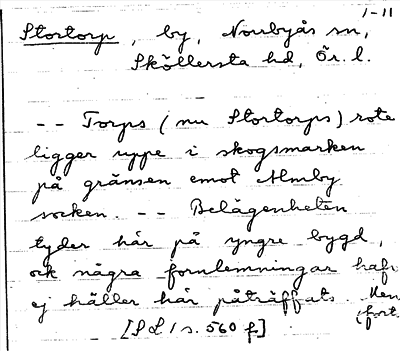 1-11
Stortorp, by, Norrbyås sn,
Sköllersta hd, Ör. l.
-- Torps (nu Stortorps) rote
ligger uppe i skogsmarken
på gränsen emot Almby
socken. -- Belägenheten
tyder här på yngre bygd,
ock några fornlemningar hafv
ej häller här påträffats. Men
(fort.
[SL 1 s. 560 f.]